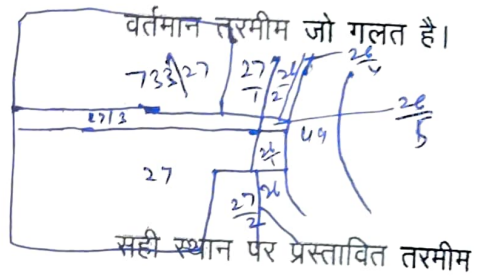 वर्तमान तरमीम जो गलत है।
733/27
27/1
26/2
26/4
26/5
27/3
49
26/1
27
27/2
26
सही स्थान पर प्रस्तावित तरमीम